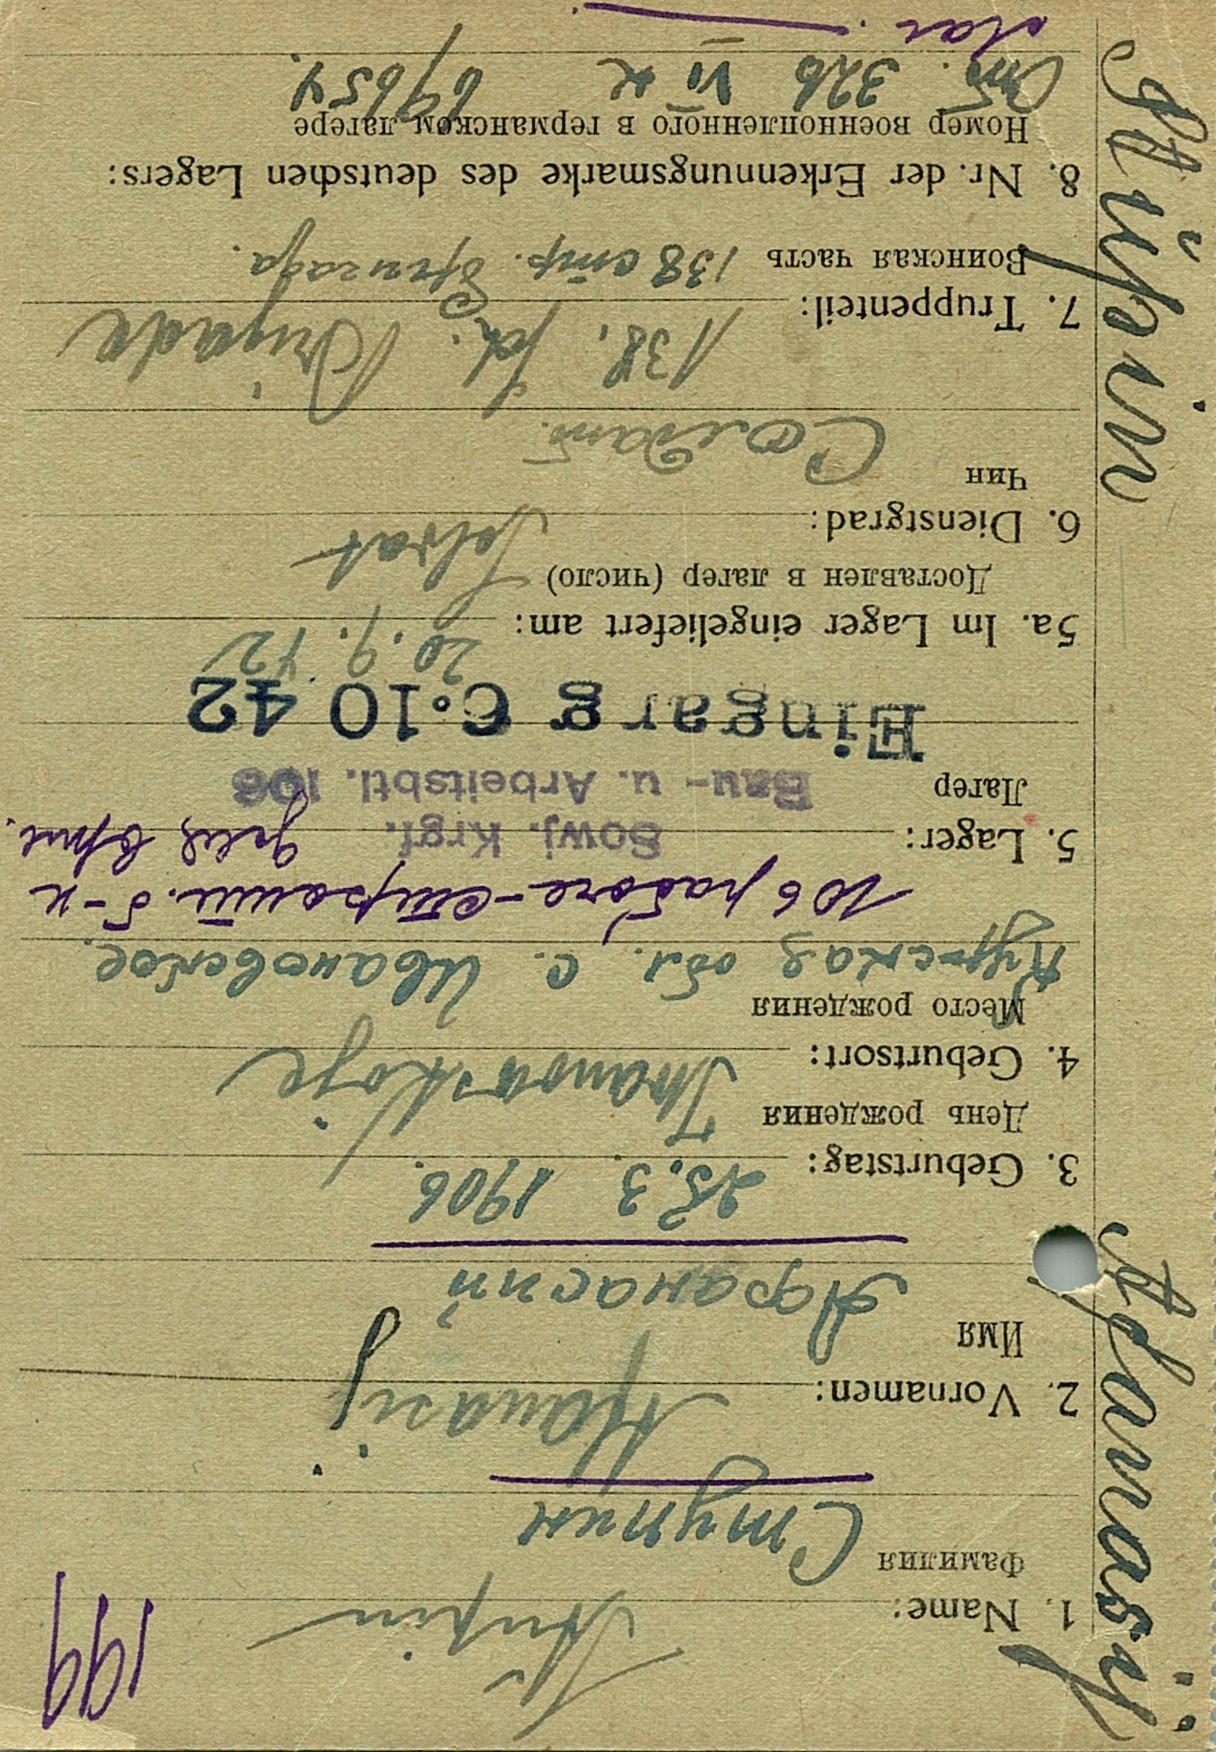 199
1. Name: Stüpin
Фамилия Ступин
2. Vornamen: Afanasij
Имя Афанасий
3. Geburtstag: 25.3.1906.
День рождения
4. Geburtsort: Iwanowskoje
Место рождения
Курская обл. с. Ивановское.
106 рабоче-строит. б-н
5. Lager: Sowj. Krgf.
Лагерь Bau- u. Arbeitsbtl. 106
Eingang 6.10 42
20.9.42
5a. Im Lager eingeliefert am:
Доставлен в лагерь (число)
6. Dienstgrad: Soldat
Чин Солдат.
7. Truppenteil: 138. Sch. Brigade
Воинская часть 138 стр. бригада.
8. Nr. der Erkennungsmarke des deutschen Lagers:
Номер военнопленного в германском лагере
326 VI K 69654.
Stüpin
Afanasij